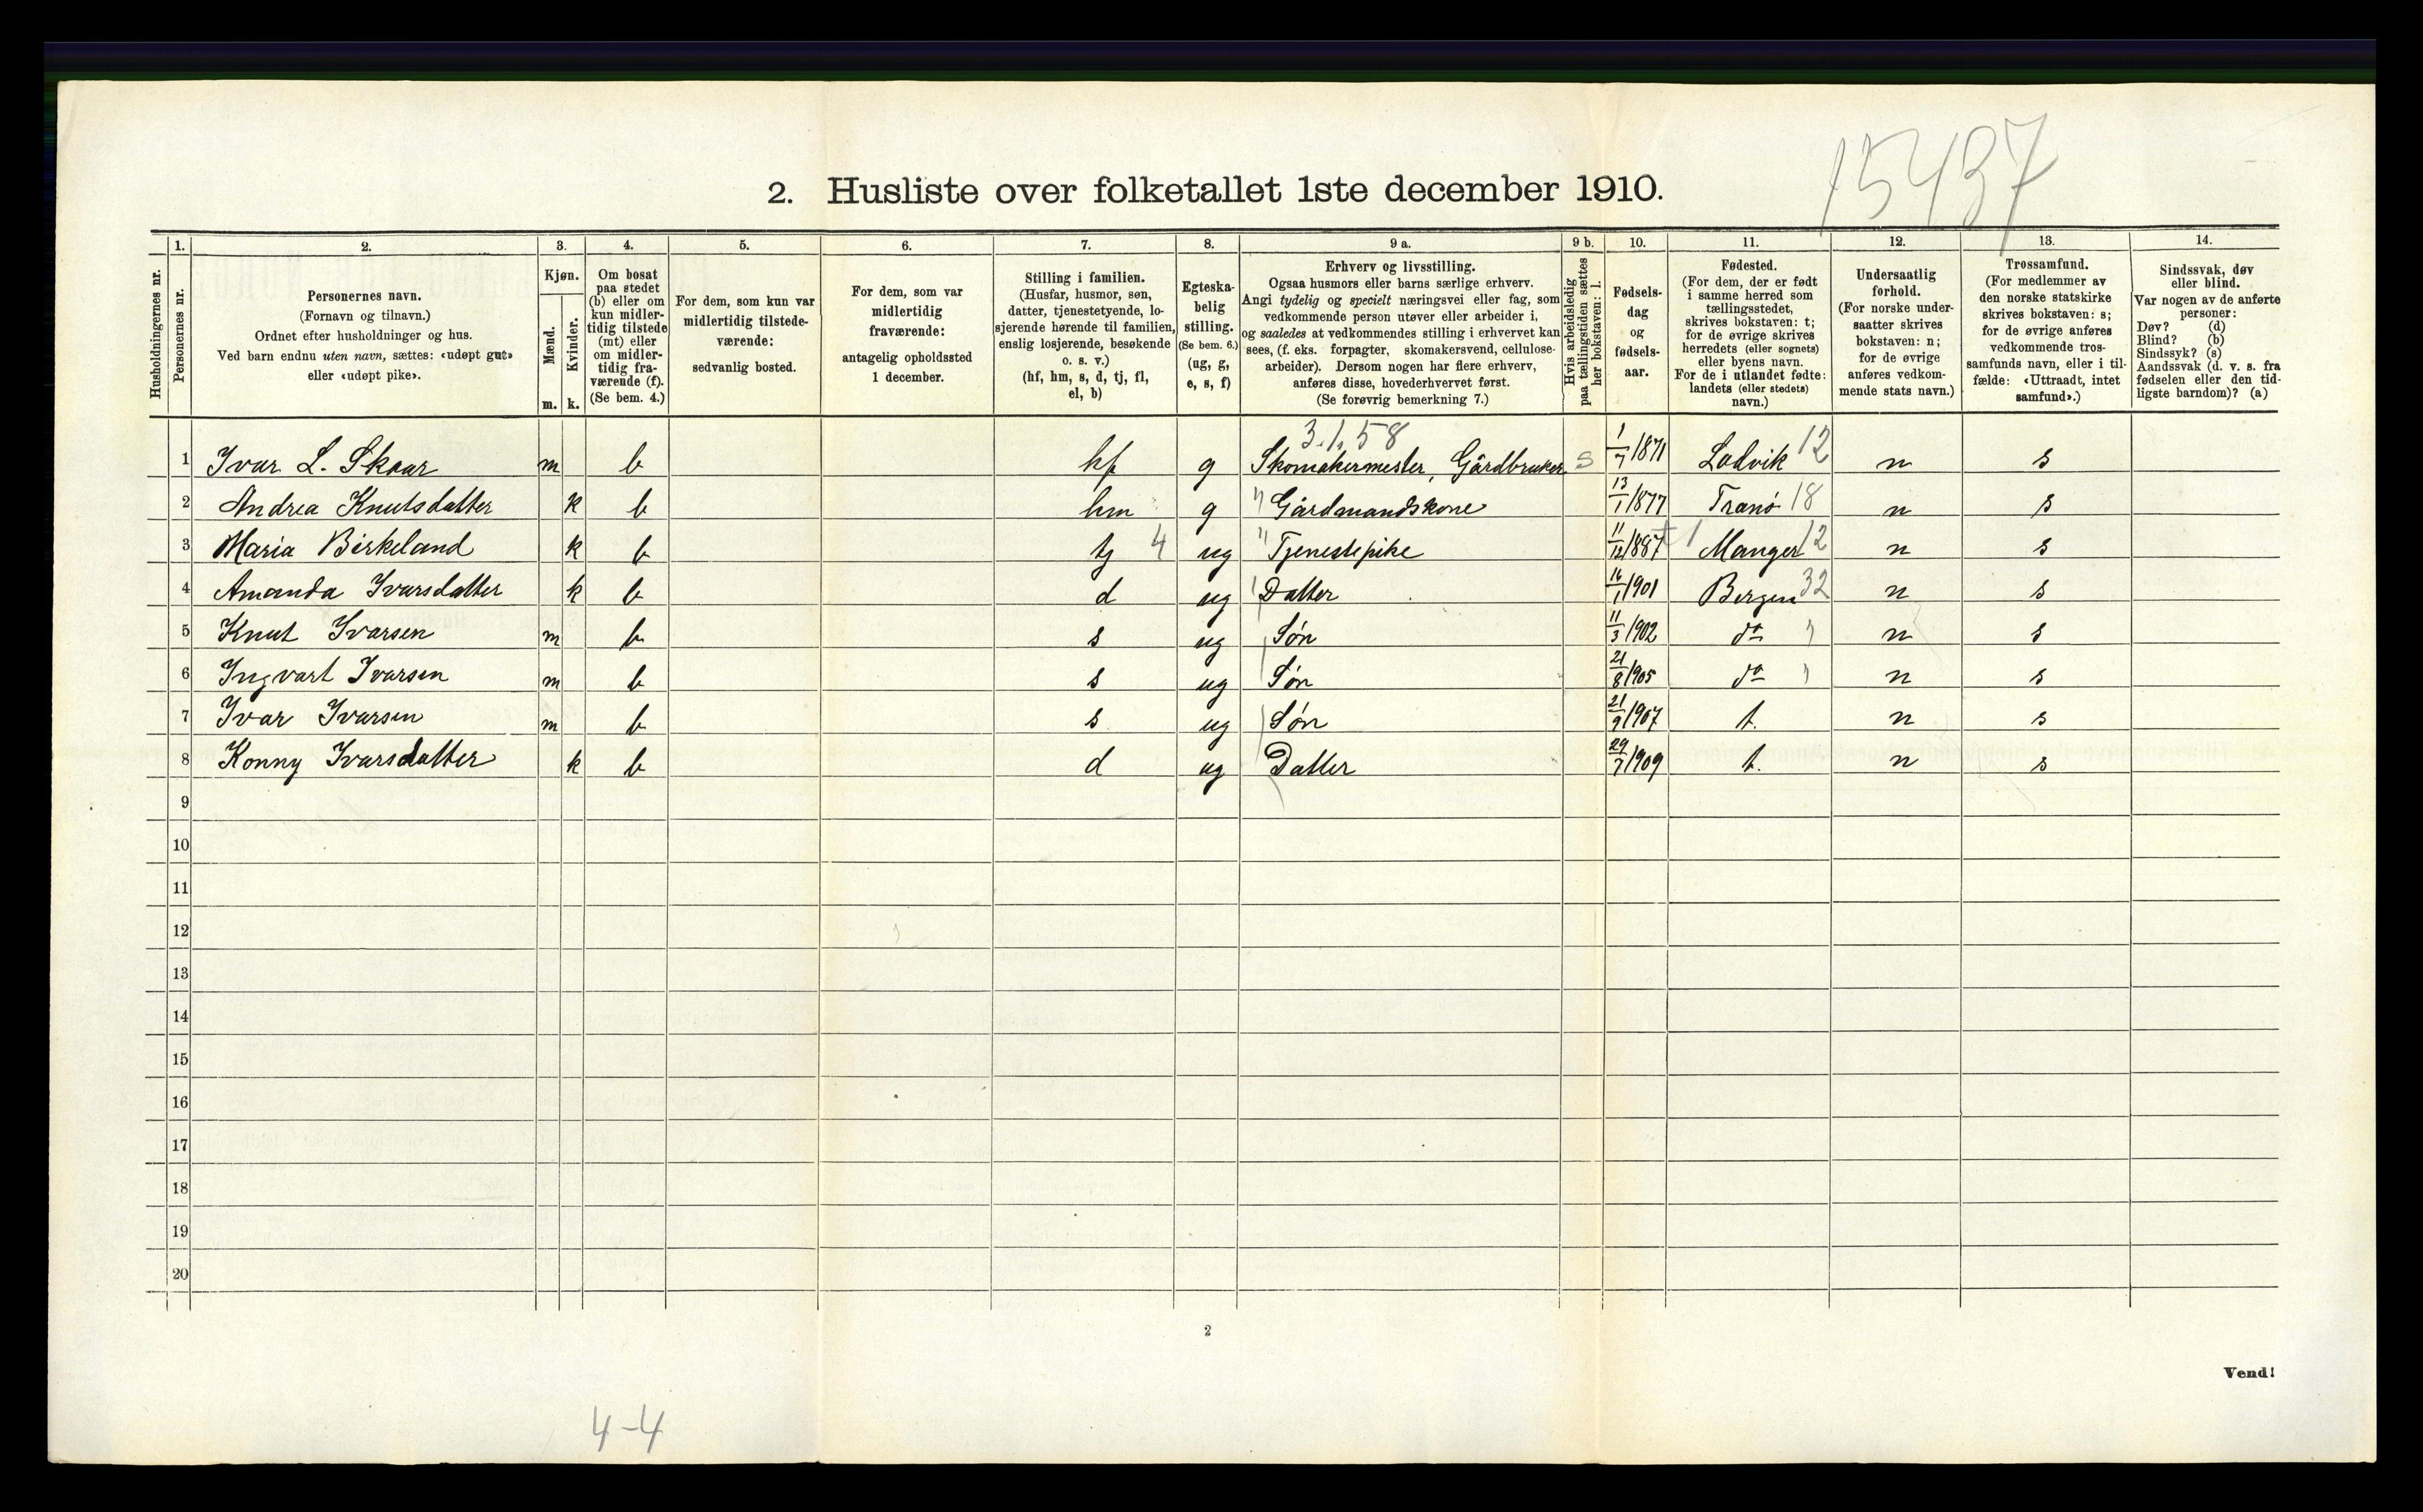 15437
2. Husliste over folketallet 1ste december 1910.
Husholdningernes nr.
1.
Personernes nr.
2.
Personernes navn.
(Fornavn og tilnavn.)
Ordnet efter husholdninger og hus.
Ved barn endnu uten navn, sættes: «udøpt gut»
eller «udøpt pike».
3.
Kjøn.
Mænd.
Kvinder.
m. k.
4.
Om bosat
paa stedet
(b) eller om
kun midler-
tidig tilstede
(mt) eller
om midler-
tidig fra-
værende (f).
(Se bem. 4.)
5.
For dem, som kun var
midlertidig tilstede-
værende:
sedvanlig bosted.
6.
For dem, som var
midlertidig
fraværende:
antagelig opholdssted
1 december.
7.
Stilling i familien.
(Husfar, husmor, søn,
datter, tjenestetyende, lo-
sjerende hørende til familien,
enslig losjerende, besøkende
o. s. v.)
(hf, hm, s, d, tj, fl,
el, b)
8.
Egteska-
belig
stilling.
(Se bem. 6.)
(ug, g,
e, s, f)
9 a.
Erhverv og livsstilling.
Ogsaa husmors eller barns særlige erhverv.
Angi tydelig og specielt næringsvei eller fag, som
vedkommende person utøver eller arbeider i,
og saaledes at vedkommendes stilling i erhvervet kan
sees, (f. eks. forpagter, skomakersvend, cellulose-
arbeider). Dersom nogen har flere erhverv,
anføres disse, hovederhvervet først.
(Se forøvrig bemerkning 7.)
9 b.
Hvis arbeidsledig
paa tællingstiden sættes
her bokstaven: l.
10.
Fødsels-
dag
og
fødsels-
aar.
11.
Fødested.
(For dem, der er født
i samme herred som
tællingsstedet,
skrives bokstaven: t;
for de øvrige skrives
herredets (eller sognets)
eller byens navn.
For de i utlandet fødte:
landets (eller stedets)
navn.)
12.
Undersaatlig
forhold.
(For norske under-
saatter skrives
bokstaven: n;
for de øvrige
anføres vedkom-
mende stats navn.)
13.
Trossamfund.
(For medlemmer av
den norske statskirke
skrives bokstaven: s;
for de øvrige anføres
vedkommende tros-
samfunds navn, eller i til-
fælde: «Uttraadt, intet
samfund».)
14.
Sindssvak, døv
eller blind.
Var nogen av de anførte
personer:
Døv? (d)
Blind? (b)
Sindssyk? (s)
Aandssvak (d. v. s. fra
fødselen eller den tid-
ligste barndom)? (a)
3.1.58
1 Ivar L. Skaar m b hf g Skomakermester, Gårdbruker s 1/7 1871 Ladvik 12 n s
2 Andrea Knutsdatter k b hm g " Gårdmandskone 13/1 1877 Tranö 18 n s
3 Maria Birkeland k b tj 4 ug " Tjenestepike 11/12 1887 Manger 12 n s
4 Amanda Ivarsdatter k b d ug Datter 16/1 1901 Bergen 32 n s
5 Knut Ivarsen m b s ug Søn 11/3 1902 do n s
6 Ingvart Ivarsen m b s ug Søn 21/8 1905 do n s
7 Ivar Ivarsen m b s ug Søn 21/9 1907 t. n s
8 Konny Ivarsdatter k b d ug Datter 29/7 1909 t. n s
9
10
11
12
13
14
15
16
17
18
19
20
2
Vend!
4-4